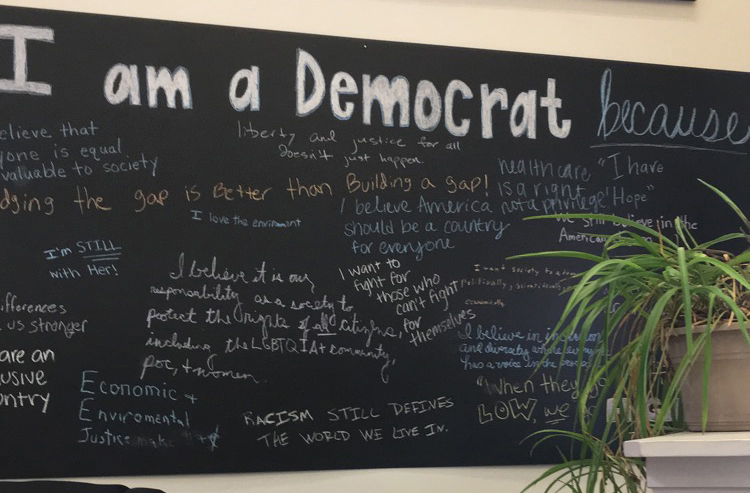 I am a Democrat because
elieve that
yone is equal
valuable to society
liberty and justice for all
doesn't just happen.
healthcare
is a right
not a privilege
"I have
'Hope"
dging the gap is Better than Building a gap!
I love the enrinment
I believe America
should be a country
for everyone
We still believe in the
American
I'm STILL
with Her!
ifferences
us stronger
are an
usive
ntry
I believe it is our
responsibility as a society to
protect the rights of all citizens,
including the LGBTQIA+ community,
poc, + women.
I want to
fight for
those who
can't fight
for
themselves
I want society to
politically,
economically
I believe in inclusion
and diversity where
has a voice in the
"When they go
LOW, we
Economic +
Enviromental
Justice
RACISM STILL DEFINES
THE WORLD WE LIVE IN.